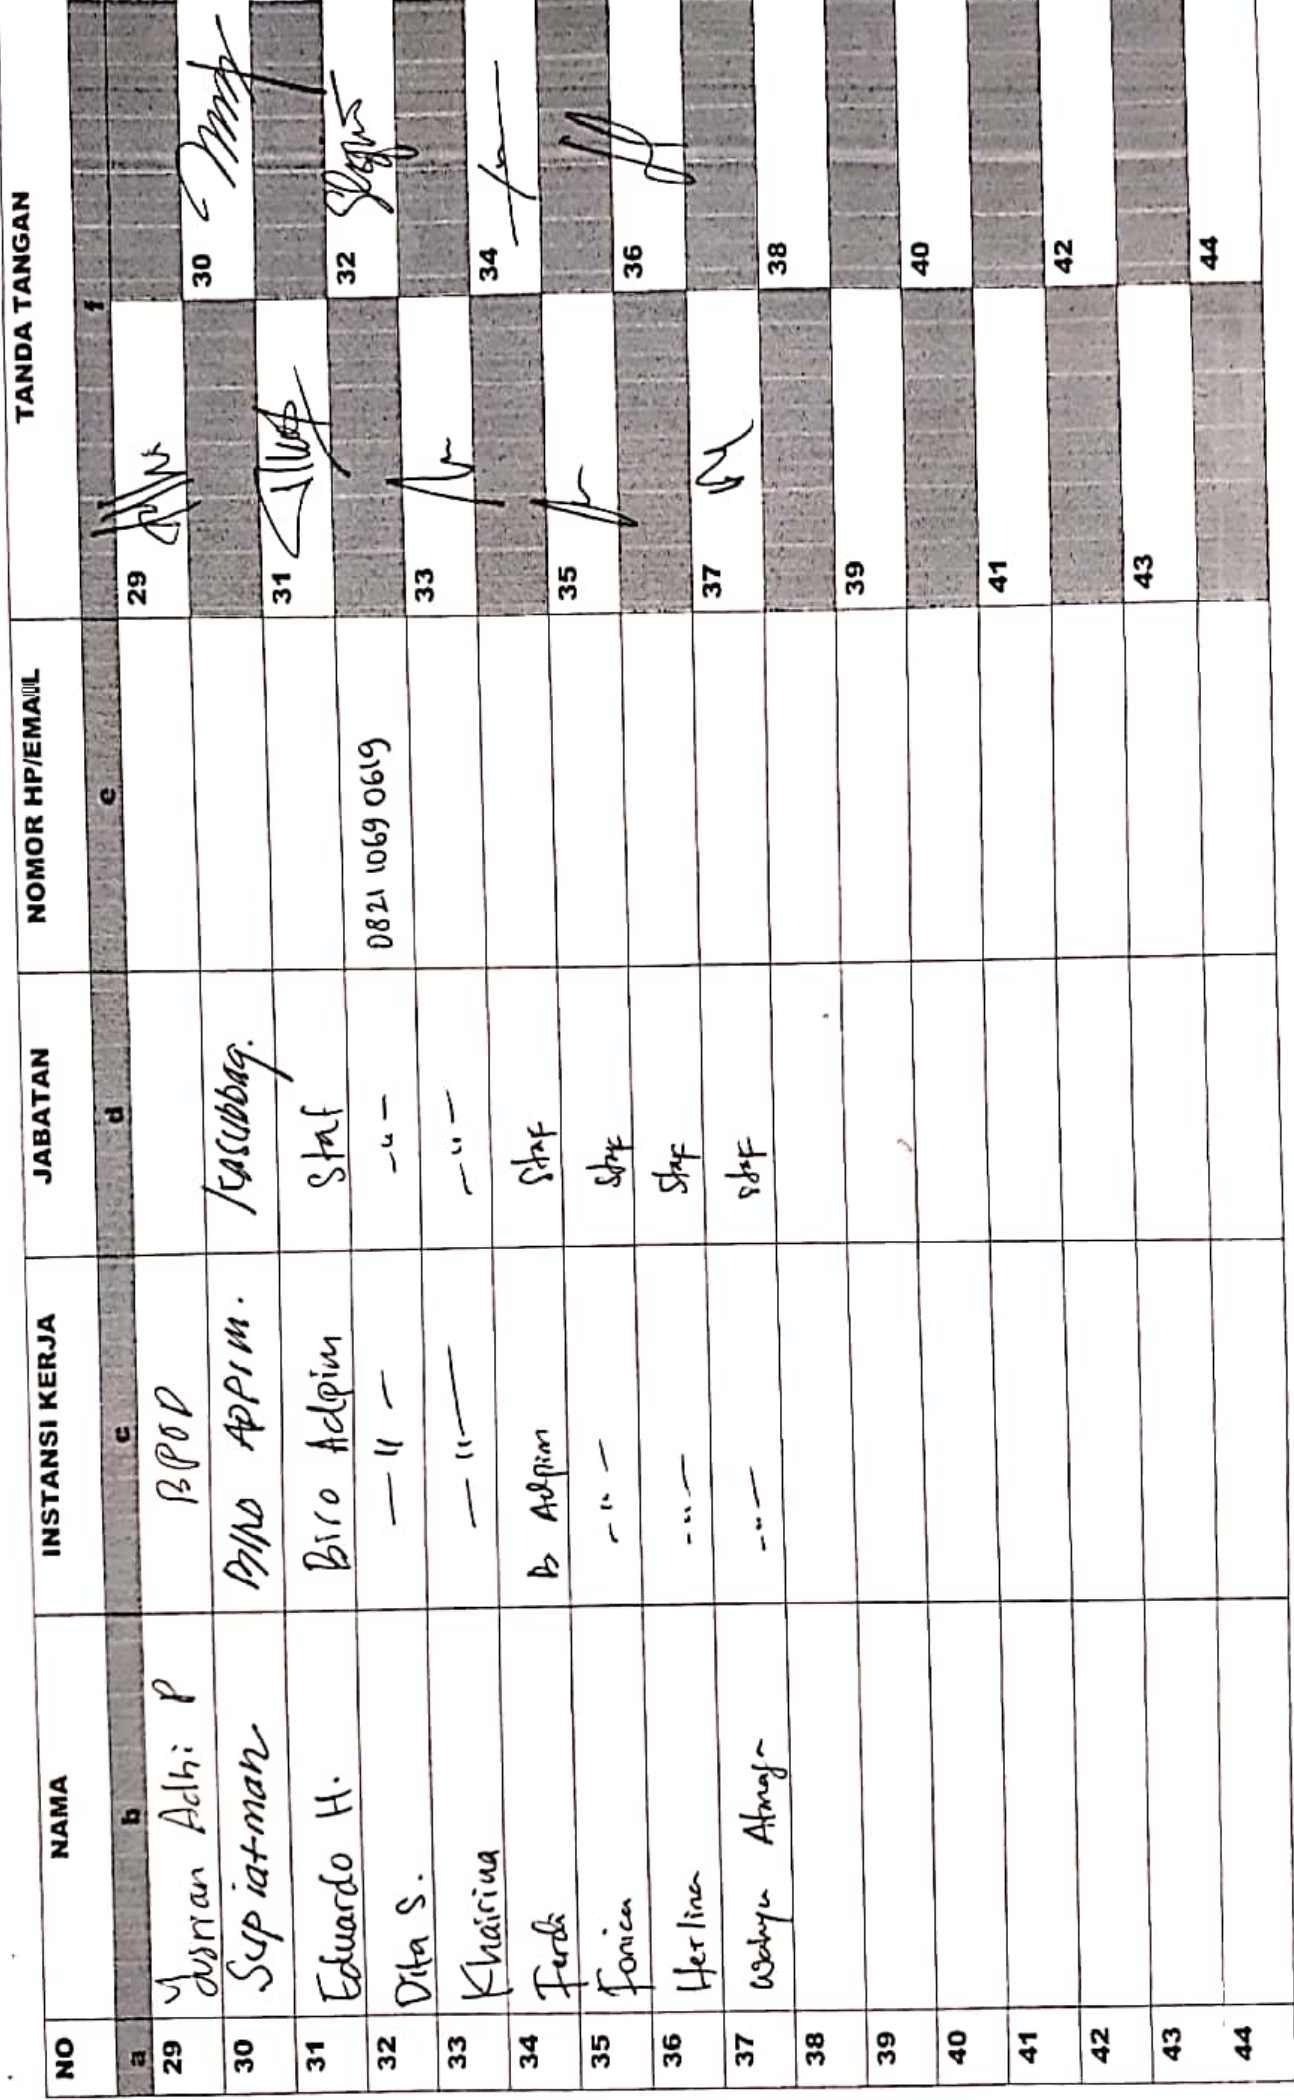 NO NAMA INSTANSI KERJA JABATAN NOMOR HP/EMAIL TANDA TANGAN
a b c d e f
29 Yusrian Adhi P BPOD 29
30 Supiatman Biro ADPIM. Kasubbag. 30
31 Eduardo H. Biro Adpim Staf 31
32 Dita S. — 〃 — — 〃 — 0821 1069 0619 32
33 Khairina — 〃 — — 〃 — 33
34 Ferdi B Adpim Staf 34
35 Fonica — 〃 — Staf 35
36 Herlina — 〃 — Staf 36
37 Wahyu — 〃 — Staf 37
38 38
39 39
40 40
41 41
42 42
43 43
44 44